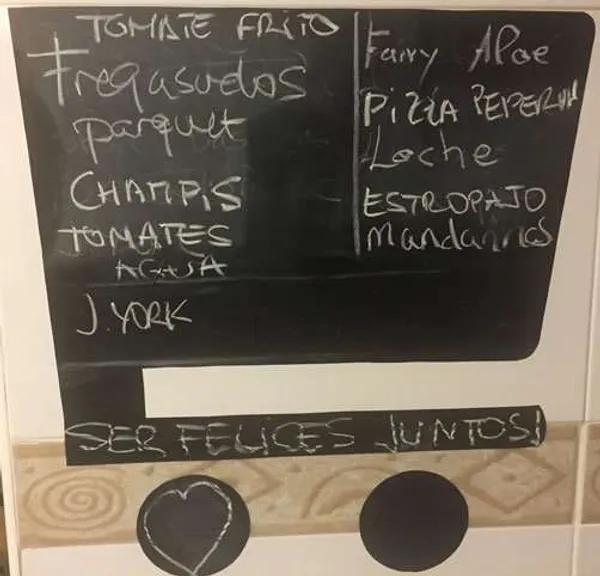 TOMATE FRITO
Fregasuelos
parquet
CHAMPIS
TOMATES
J. YORK
Fairy Aloe
PIZZA PEPERONI
Leche
ESTROPAJO
Mandarinas
SER FELICES JUNTOS!